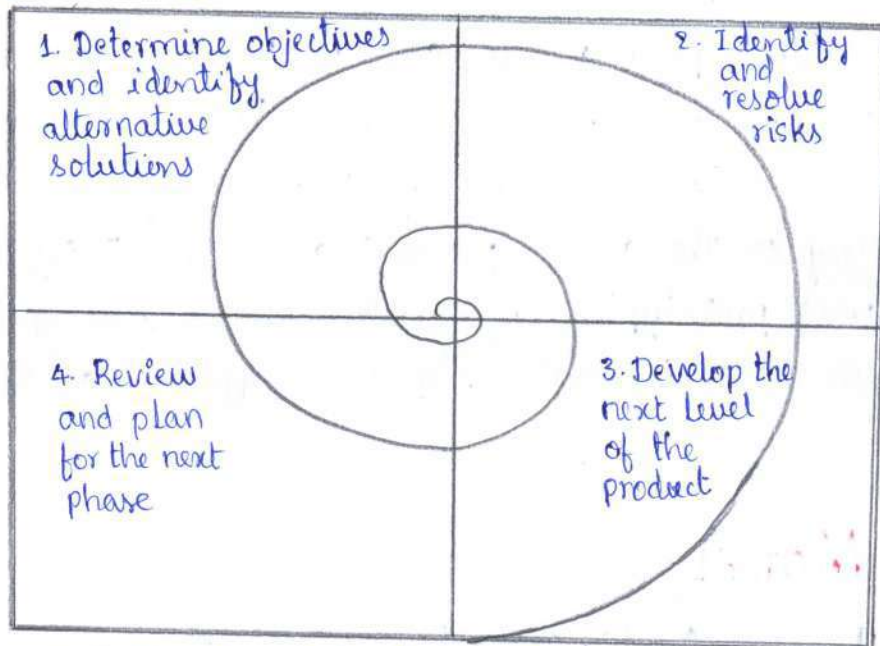 1. Determine objectives
and identify
alternative
solutions
2. Identify
and
resolve
risks
4. Review
and plan
for the next
phase
3. Develop the
next level
of the
product